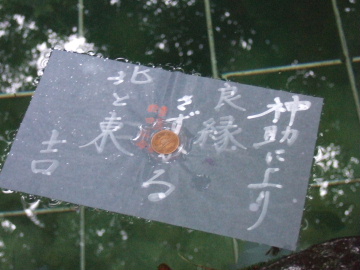 神助により
良縁
きずける
北と東
吉